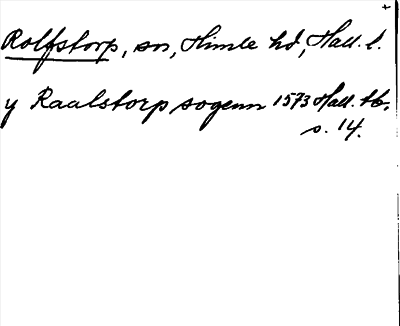 +
Rolfstorp, sn, Himle hd, Hall. l.
y Raalstorp sogenn 1573 Hall. tb.
s. 14.